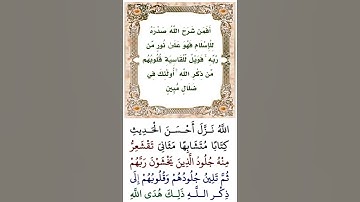 أَفَمَن شَرَحَ اللَّهُ صَدْرَهُ
لِلْإِسْلَامِ فَهُوَ عَلَىٰ نُورٍ مِّن
رَّبِّهِ ۚ فَوَيْلٌ لِّلْقَاسِيَةِ قُلُوبُهُم
مِّن ذِكْرِ اللَّهِ ۚ أُولَٰئِكَ فِي
ضَلَالٍ مُّبِينٍ
اللَّهُ نَزَّلَ أَحْسَنَ الْحَدِيثِ
كِتَابًا مُّتَشَابِهًا مَّثَانِيَ تَقْشَعِرُّ
مِنْهُ جُلُودُ الَّذِينَ يَخْشَوْنَ رَبَّهُمْ
ثُمَّ تَلِينُ جُلُودُهُمْ وَقُلُوبُهُمْ إِلَىٰ
ذِكْرِ اللَّهِ ذَٰلِكَ هُدَى اللَّهِ